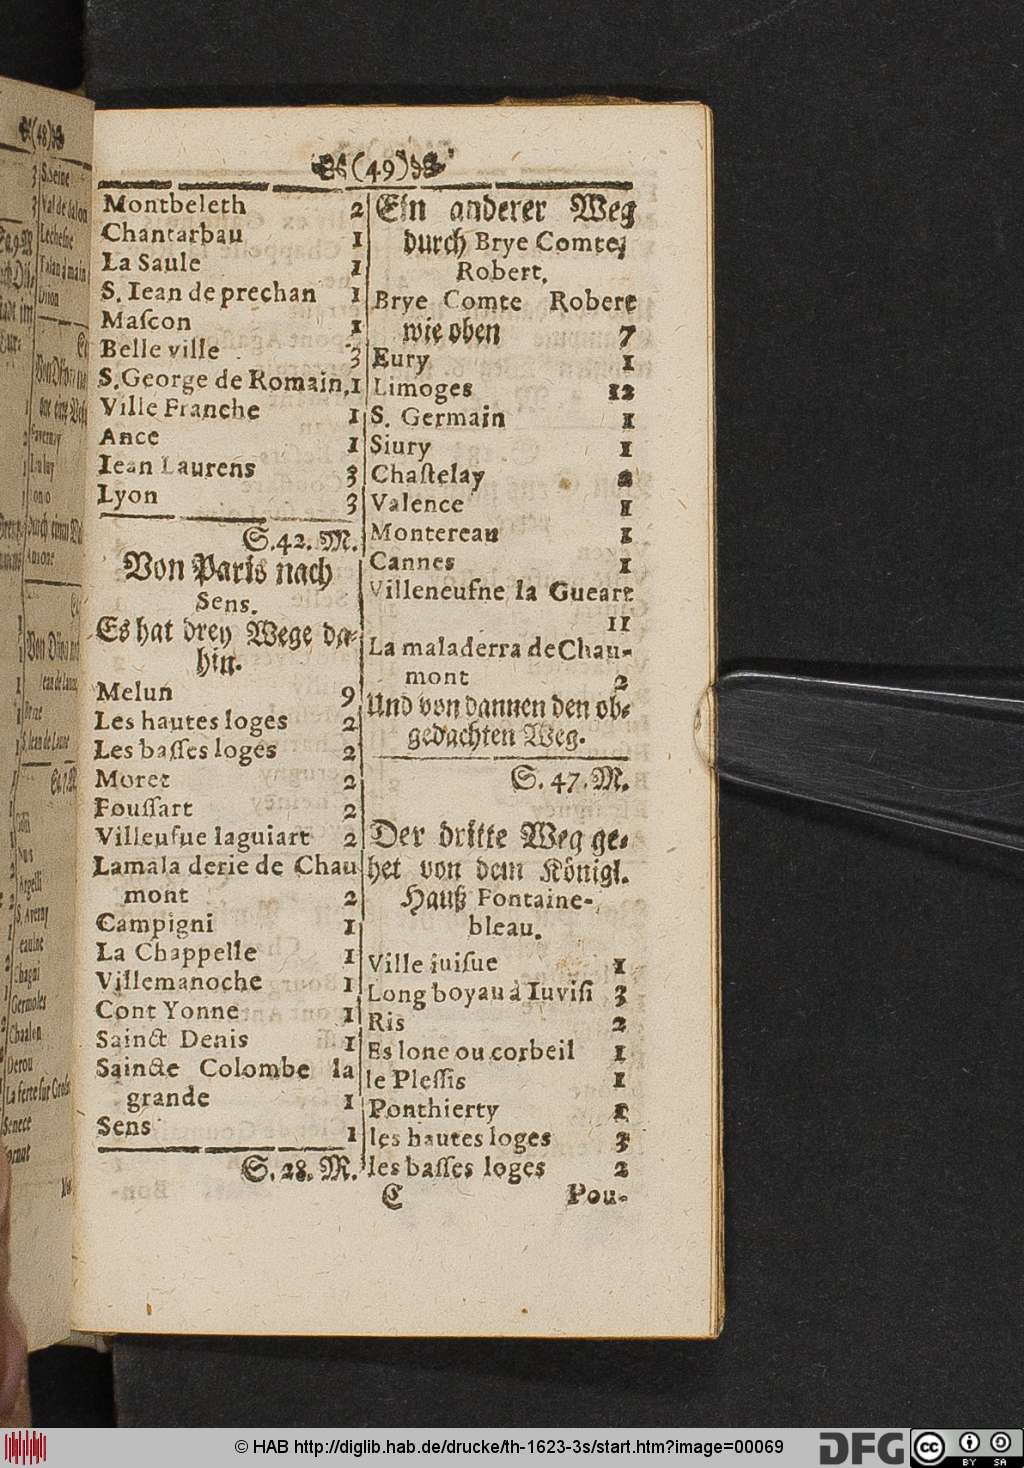 (49)
Montbeleth 2
Chantarbau 1
La Saule 1
S. Iean de prechan 1
Maſcon 1
Belle ville 3
S. George de Romain, 1
Ville Franche 1
Ance 1
Iean Laurens 3
Lyon 3
S. 42. M.
Von Paris nach
Sens.
Es hat drey Wege da-
hin.
Melun 9
Les hautes loges 2
Les baſſes loges 2
Moret 2
Fouſſart 2
Villeuſue laguiart 2
Lamala derie de Chau
mont 2
Campigni 1
La Chappelle 1
Villemanoche 1
Cont Yonne 1
Sainct Denis 1
Saincte Colombe la
grande 1
Sens 1
S. 28. M.
Ein anderer Weg
durch Brye Comte,
Robert.
Brye Comte Robert
wie oben 7
Eury 1
Limoges 12
S. Germain 1
Siury 1
Chaſtelay 2
Valence 1
Montereau 1
Cannes 1
Villeneuſne la Gueart
11
La maladerra de Chau-
mont 2
Und von dannen den ob-
gedachten Weg.
S. 47. M.
Der dritte Weg ge-
het von dem Königl.
Hauß Fontaine-
bleau.
Ville iuiſue 1
Long boyau à Iuviſi 3
Ris 2
Es lone ou corbeil 1
le Pleſſis 1
Ponthierty 1
les hautes loges 3
les baſſes loges 2
C Pou-
(48)
S. Seine
Val de Salon
Dijon
Argelli
S. Averny
Chagni
Germoles
Chaalon
Derou
La ferte sur Grosne
Senece
© HAB http://diglib.hab.de/drucke/th-1623-3s/start.htm?image=00069
DFG
CC BY SA